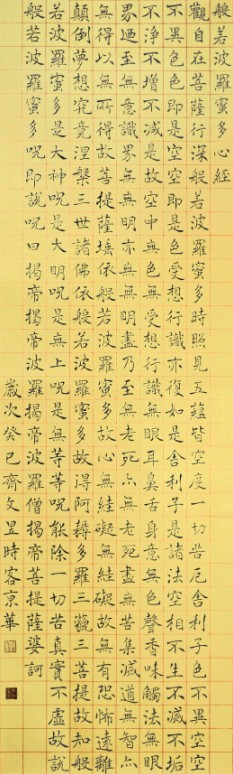 般若波羅蜜多心經
觀自在菩薩行深般若波羅蜜多時照見五蘊皆空度一切苦厄舍利子色不異空空
不異色色即是空空即是色受想行識亦復如是舍利子是諸法空相不生不滅不垢
不淨不增不減是故空中無色無受想行識無眼耳鼻舌身意無色聲香味觸法無眼
界迺至無意識界無無明亦無無明盡乃至無老死亦無老死盡無苦集滅道無智亦
無得以無所得故菩提薩埵依般若波羅蜜多故心無罣礙無罣礙故無有恐怖遠離
顛倒夢想究竟涅槃三世諸佛依般若波羅蜜多故得阿耨多羅三藐三菩提故知般
若波羅蜜多是大神呪是大明呪是無上呪是無等等呪能除一切苦真實不虛故說
般若波羅蜜多呪即說呪曰揭帝揭帝波羅揭帝波羅僧揭帝菩提薩婆訶
歲次癸巳齊文昱時客京華